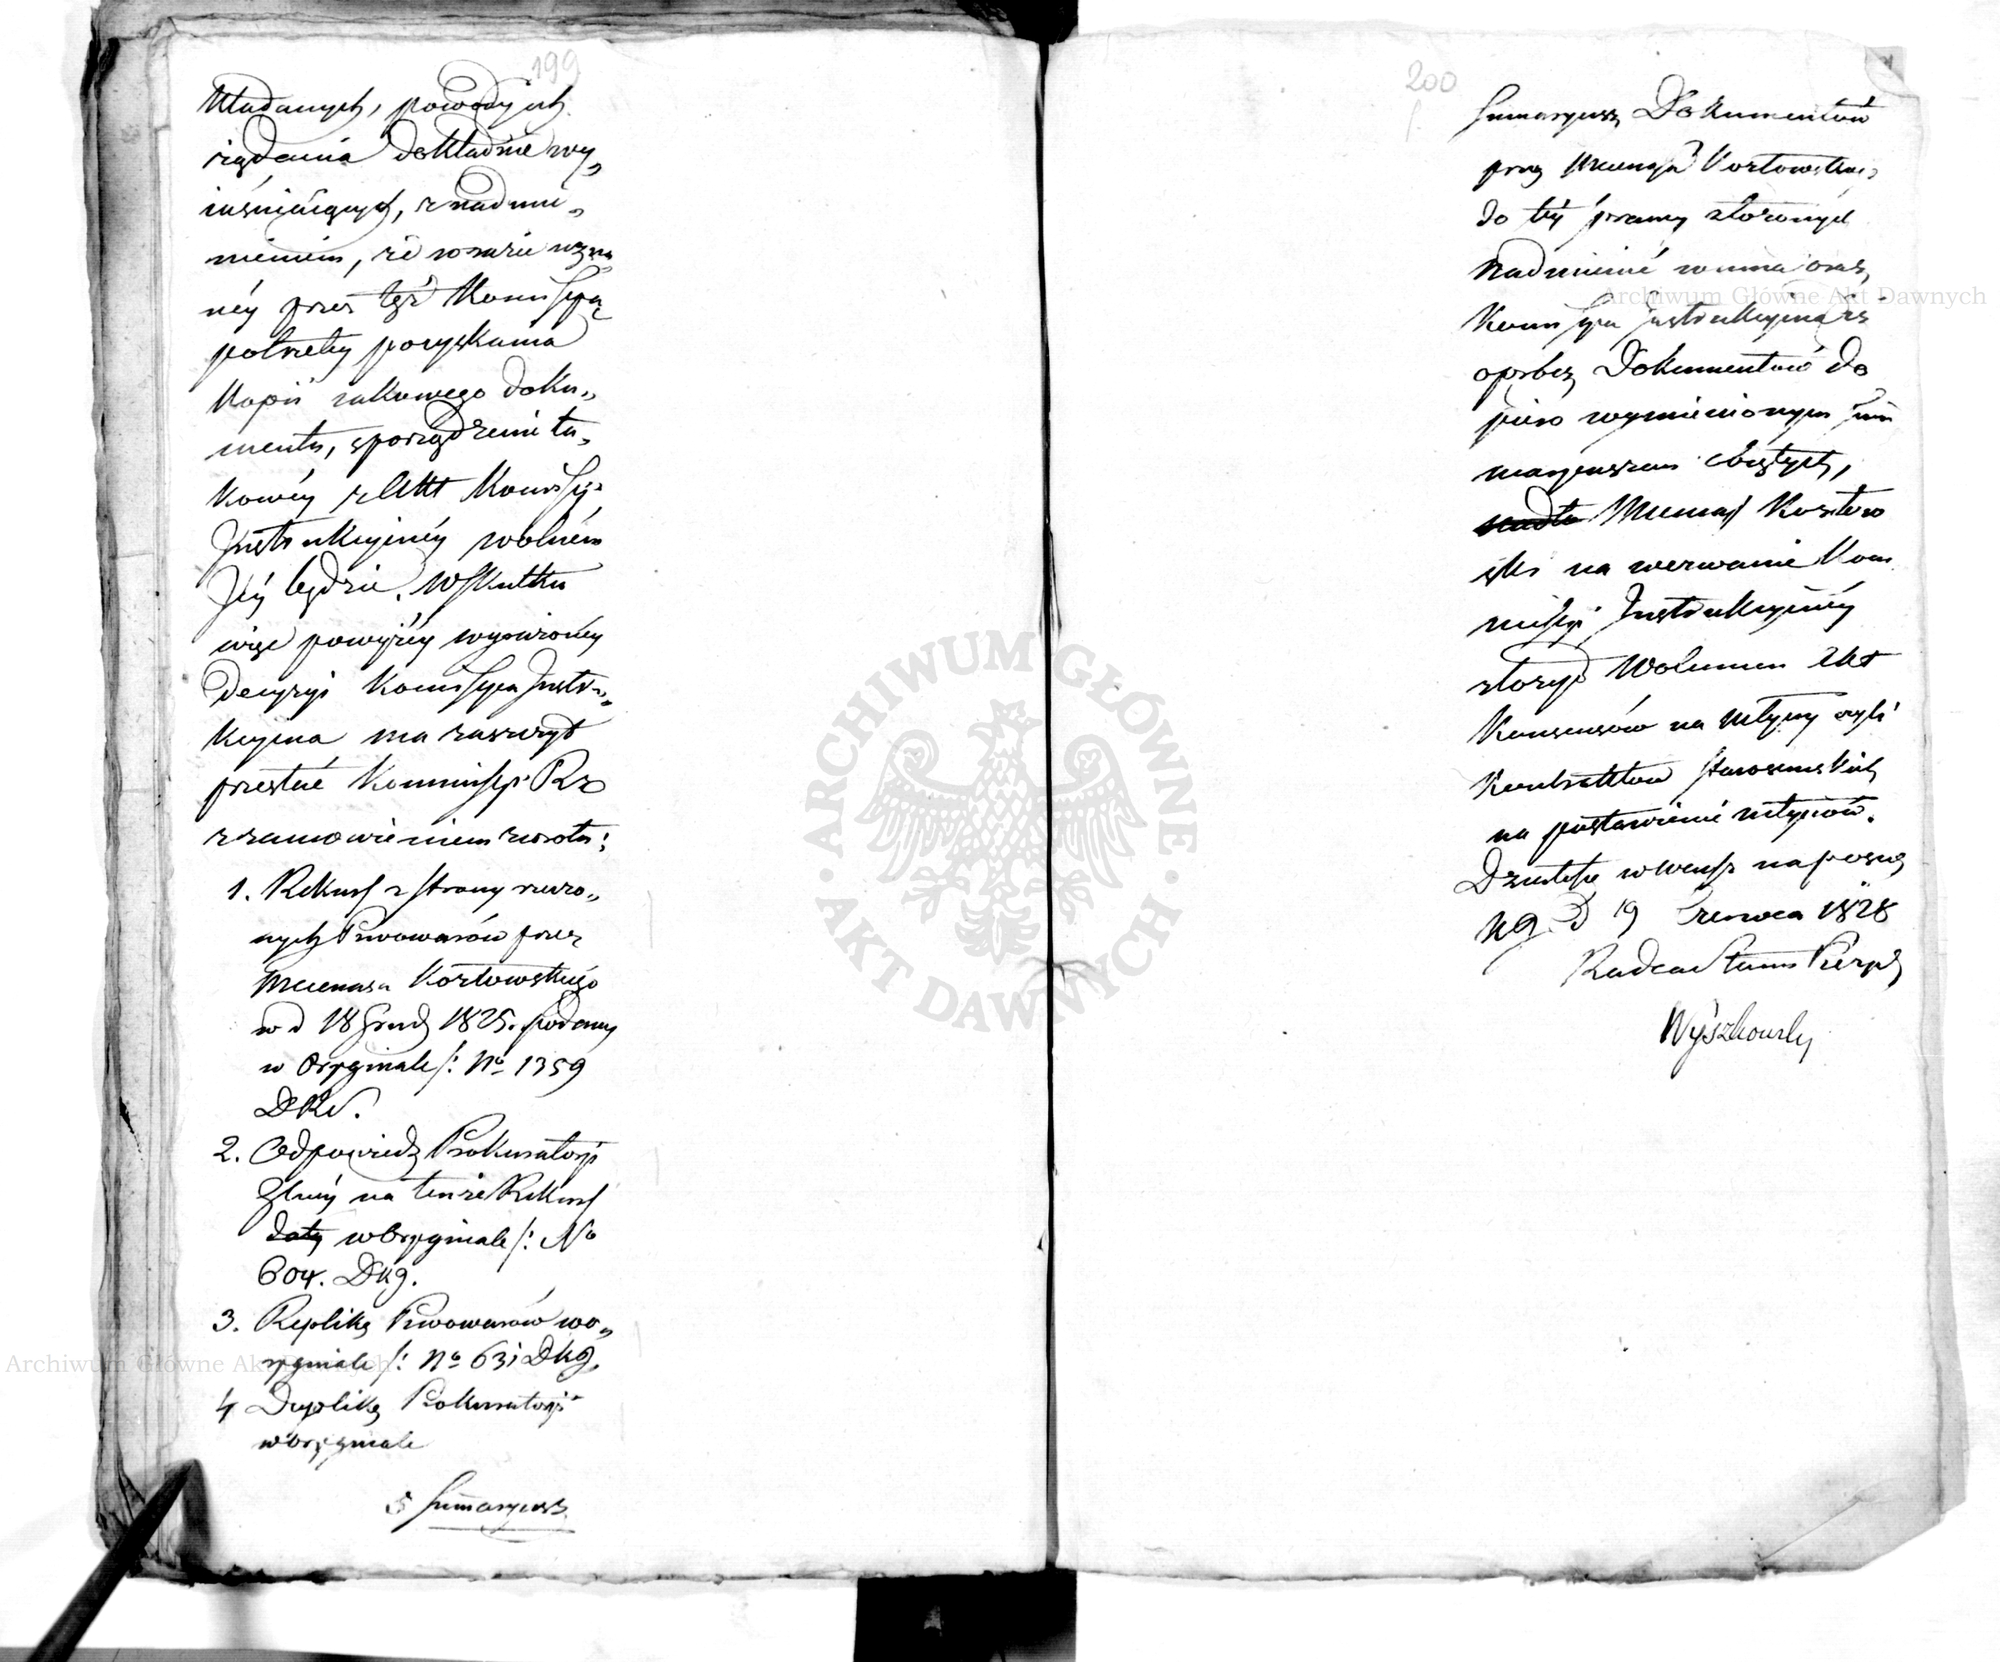 199
kładanych, powody ich
rządania dokładnie wy„
iaśniaiących, z nadmi„
nieniem, że w razie uzna
néy przez tęż Kommissyą
potrzeby pozyskania
Kopii iakowego doku„
mentu, sporządzenie ta„
kowéy z Akt Komissyi
Instrukcyinéy wolném
Jéy będzie. W skutku
więc powyżéy wyrażonéy
decyzyi Komissya Instru„
kcyina ma zaszczyt
przesłać Kommissyi Rz
z zamówieniem zwrotu:
1. Rekurs z strony rzeczo„
nych Piwowarów przez
Mecenasa Kozłowskiego
w d 18 Grud 1825. podany
w Oryginale /: No 1359
DKN.
2. Odpowiedz Prokuratoryi
Głnéy na tenże Rekurs
w Oryginale /: No
604. DKg.
3. Replikę Piwowarów w o„
ryginale /: No 631 DKg.
4 Duplikę Prokuratoryi
w oryginale
5 Summaryusz
200
Summaryusz Dokumentów
przez Mecenasa Kozłowskiego
do téy sprawy złożonych
Nadmienić winna oraz,
Komissya Instrukcyina że
oprócz Dokumentów do
piero wymienionym Sum
maryuszem obiętych,
Mecenas Kozłow
ski na wezwanie Kom
missyi Instrukcyinéy
złożył Wolumen Akt
Konsensów na młyny czyli
Kontraktów
na postawienie młynów.
Działo się w Warsz na posie
KG. D 19 Czerwca 1828
Radca Stanu Prezyd
Wyszkowski
Archiwum Główne Akt Dawnych
Archiwum Główne Akt Dawnych
ARCHIWUM GŁÓWNE
AKT DAWNYCH